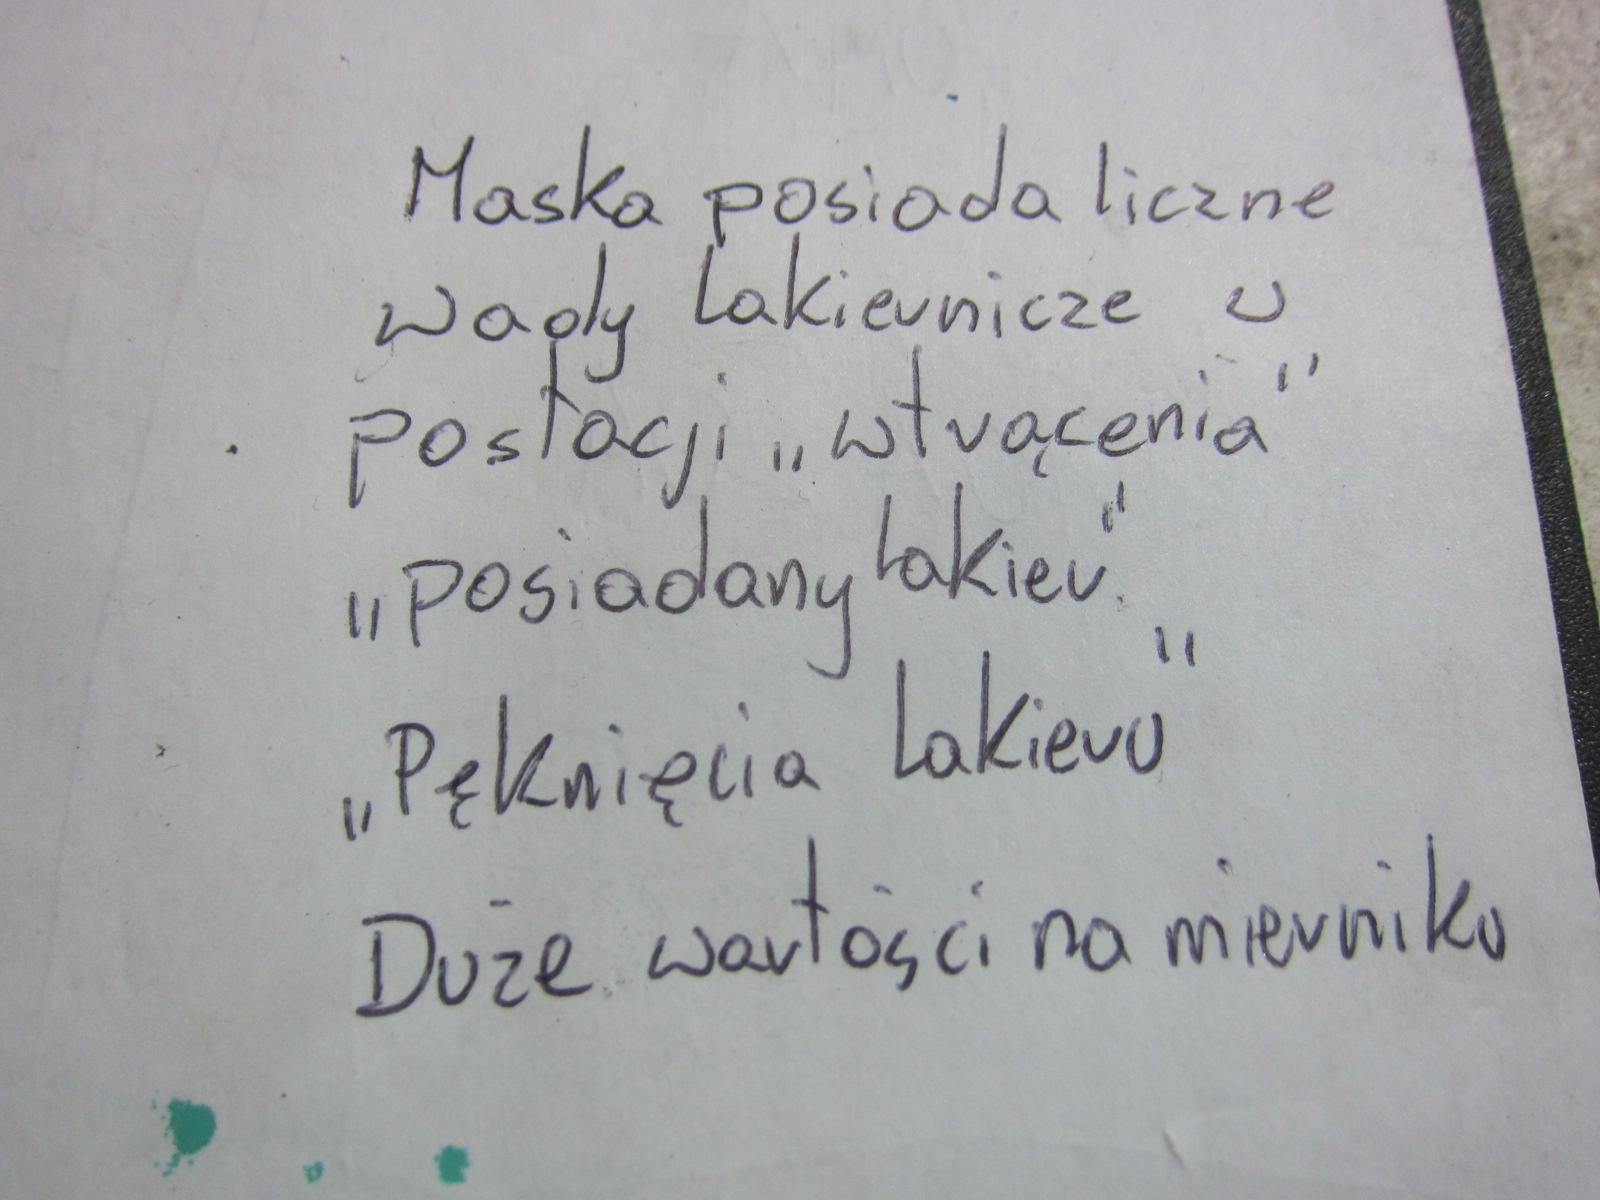 Maska posiada liczne
wady lakiernicze w
postacji „wtrącenia"
„posiadany lakier".
„Pęknięcia lakieru"
Duże wartości na mierniku